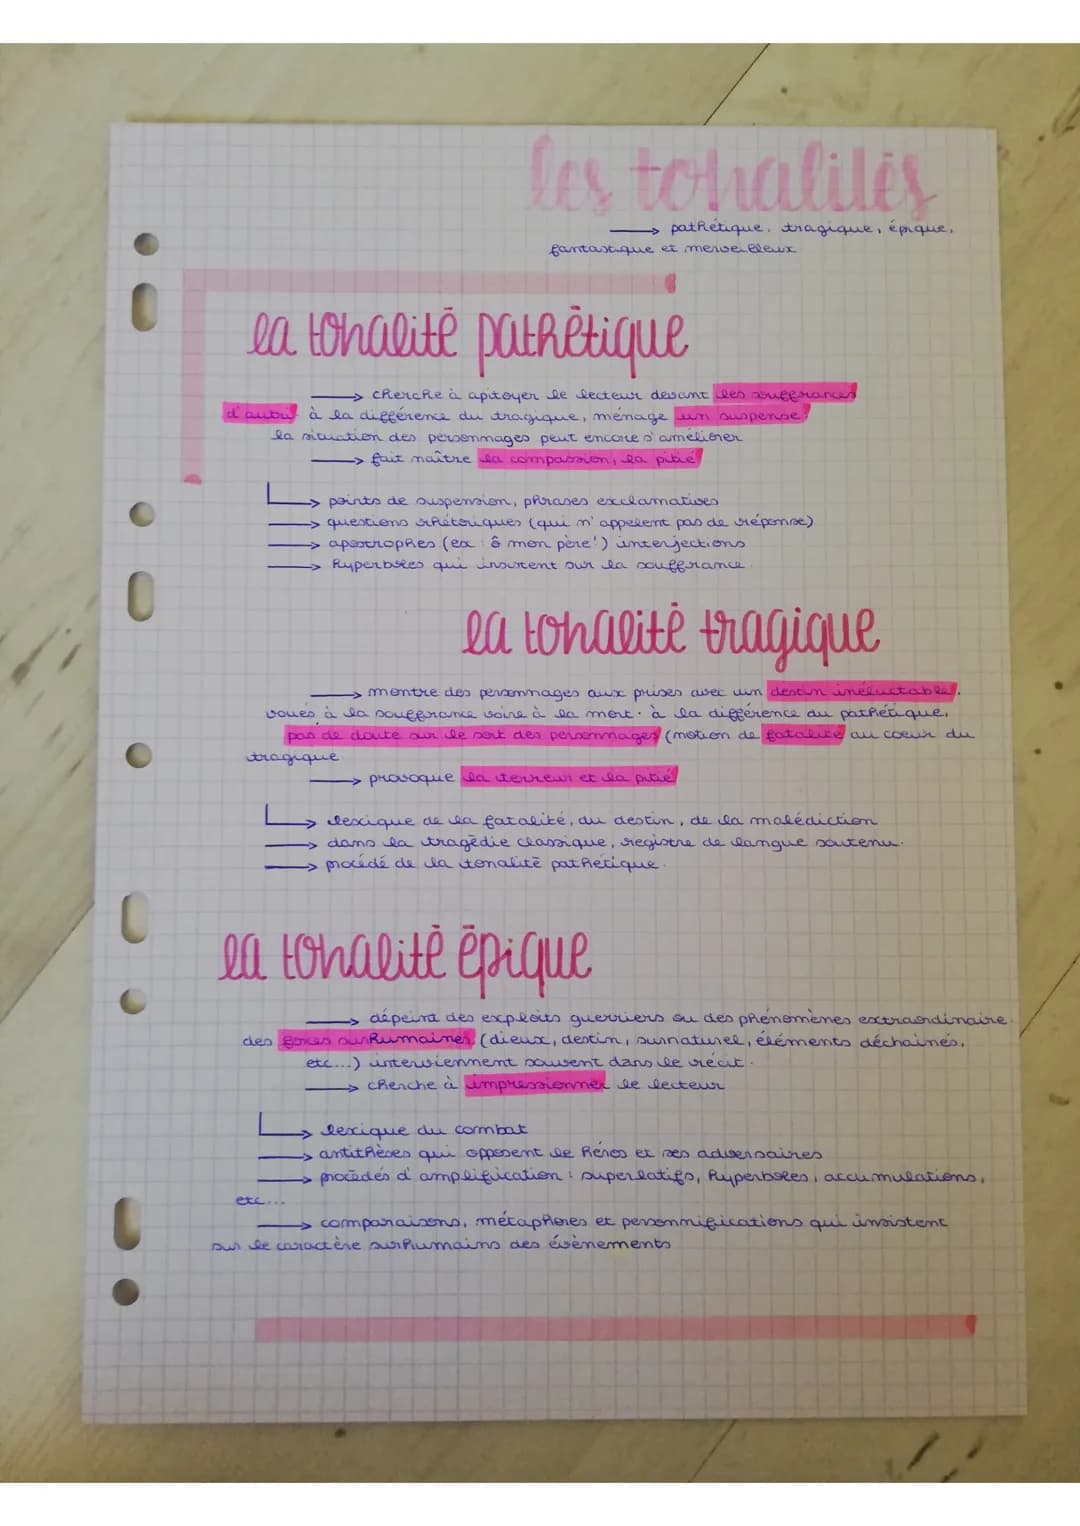 les tonalités
→ pathétique, tragique, épique,
fantastique et merveilleux
la tonalité pathétique
→ cherche à apitoyer le lecteur devant les souffrances
d'autrui à la différence du tragique, ménage un suspense.
la situation des personnages peut encore s'améliorer
→ fait naître la compassion, la pitié
→ points de suspension, phrases exclamatives
→ questions rhétoriques (qui n'appelent pas de réponse)
→ apostrophes (ex : ô mon père!) interjections
→ hyperboles qui insistent sur la souffrance.
la tonalité tragique
→ montre des personnages aux prises avec un destin inéluctable,
voués à la souffrance voire à la mort. à la différence du pathétique,
pas de doute sur le sort des personnages (notion de fatalité au coeur du
tragique
→ provoque la terreur et la pitié
→ lexique de la fatalité, du destin, de la malédiction
→ dans la tragédie classique, registre de langue soutenu.
→ procédé de la tonalité pathétique.
la tonalité épique
→ dépeint des exploits guerriers ou des phénomènes extraordinaire
des forces surhumaines (dieux, destin, surnaturel, éléments déchaînés,
etc...) interviennent souvent dans le récit.
→ cherche à impressionner le lecteur
→ lexique du combat
→ antithèses qui opposent le héros et ses adversaires
→ procédés d'amplification : superlatifs, hyperboles, accumulations,
etc...
→ comparaisons, métaphores et personnifications qui insistent
sur le caractère surhumains des évènements